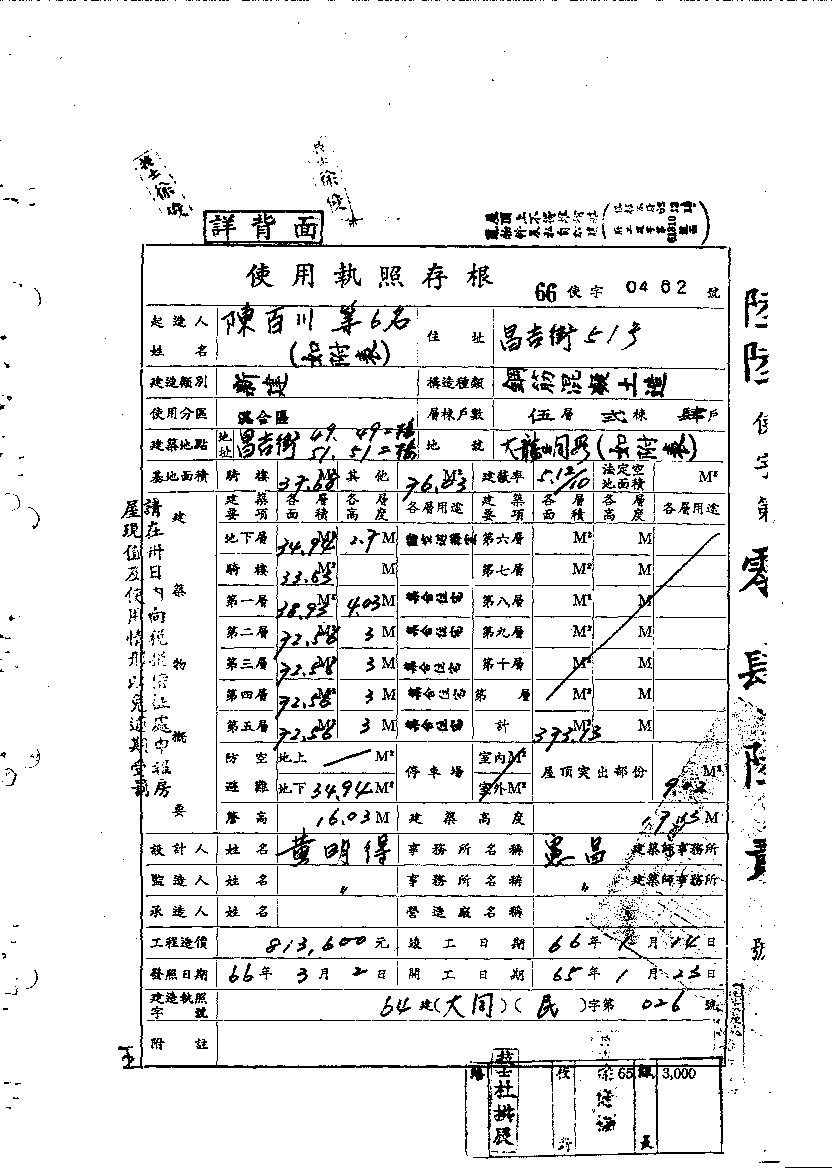 技士徐
技士徐
詳背面
使用執照存根
66 使字 0462 號
起造人姓名 陳百川 等6名 (如附表) 住址 昌吉街51號
建造類別 新建 構造種類 鋼筋混凝土造
使用分區 混合區 層棟戶數 伍層 弍棟 肆戶
建築地點 地址 昌吉街 49. 49二樓 51. 51二樓 地號 大龍峒段(如附表)
基地面積 騎樓 37.68 M² 其他 76.83 M² 建蔽率 5.12/10 法定空地面積 M²
建築物概要
建築要項 各層面積 各層高度 各層用途 建築要項 各層面積 各層高度 各層用途
地下層 34.94 M² 2.7 M 第六層 M² M
騎樓 33.63 M² M 第七層 M² M
第一層 38.93 M² 4.03 M 集合住宅 第八層 M² M
第二層 72.58 M² 3 M 集合住宅 第九層 M² M
第三層 72.58 M² 3 M 集合住宅 第十層 M² M
第四層 72.58 M² 3 M 集合住宅 第 層 M² M
第五層 72.58 M² 3 M 集合住宅 計 M² M
防空避難 地上 M² 地下 34.94 M² 停車場 室內 M² 室外 M² 屋頂突出部份 M²
簷高 16.03 M 建築高度 M
設計人 姓名 黃明得 事務所名稱 憲昌 建築師事務所
監造人 姓名 〃 事務所名稱 〃 建築師事務所
承造人 姓名 營造廠名稱
工程造價 813,600 元 竣工日期 66年1月14日
發照日期 66年3月2日 開工日期 65年1月23日
建造執照字號 64建(大同)(民)字第026號
附註
請在卅日內向稅捐稽征處申報房
屋現值及使用情形以免逾期受罰
使字第零
號
技士杜
65
3,000